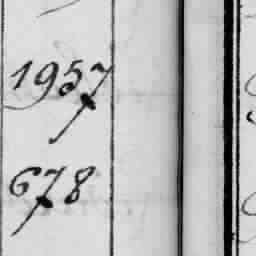 1957
678